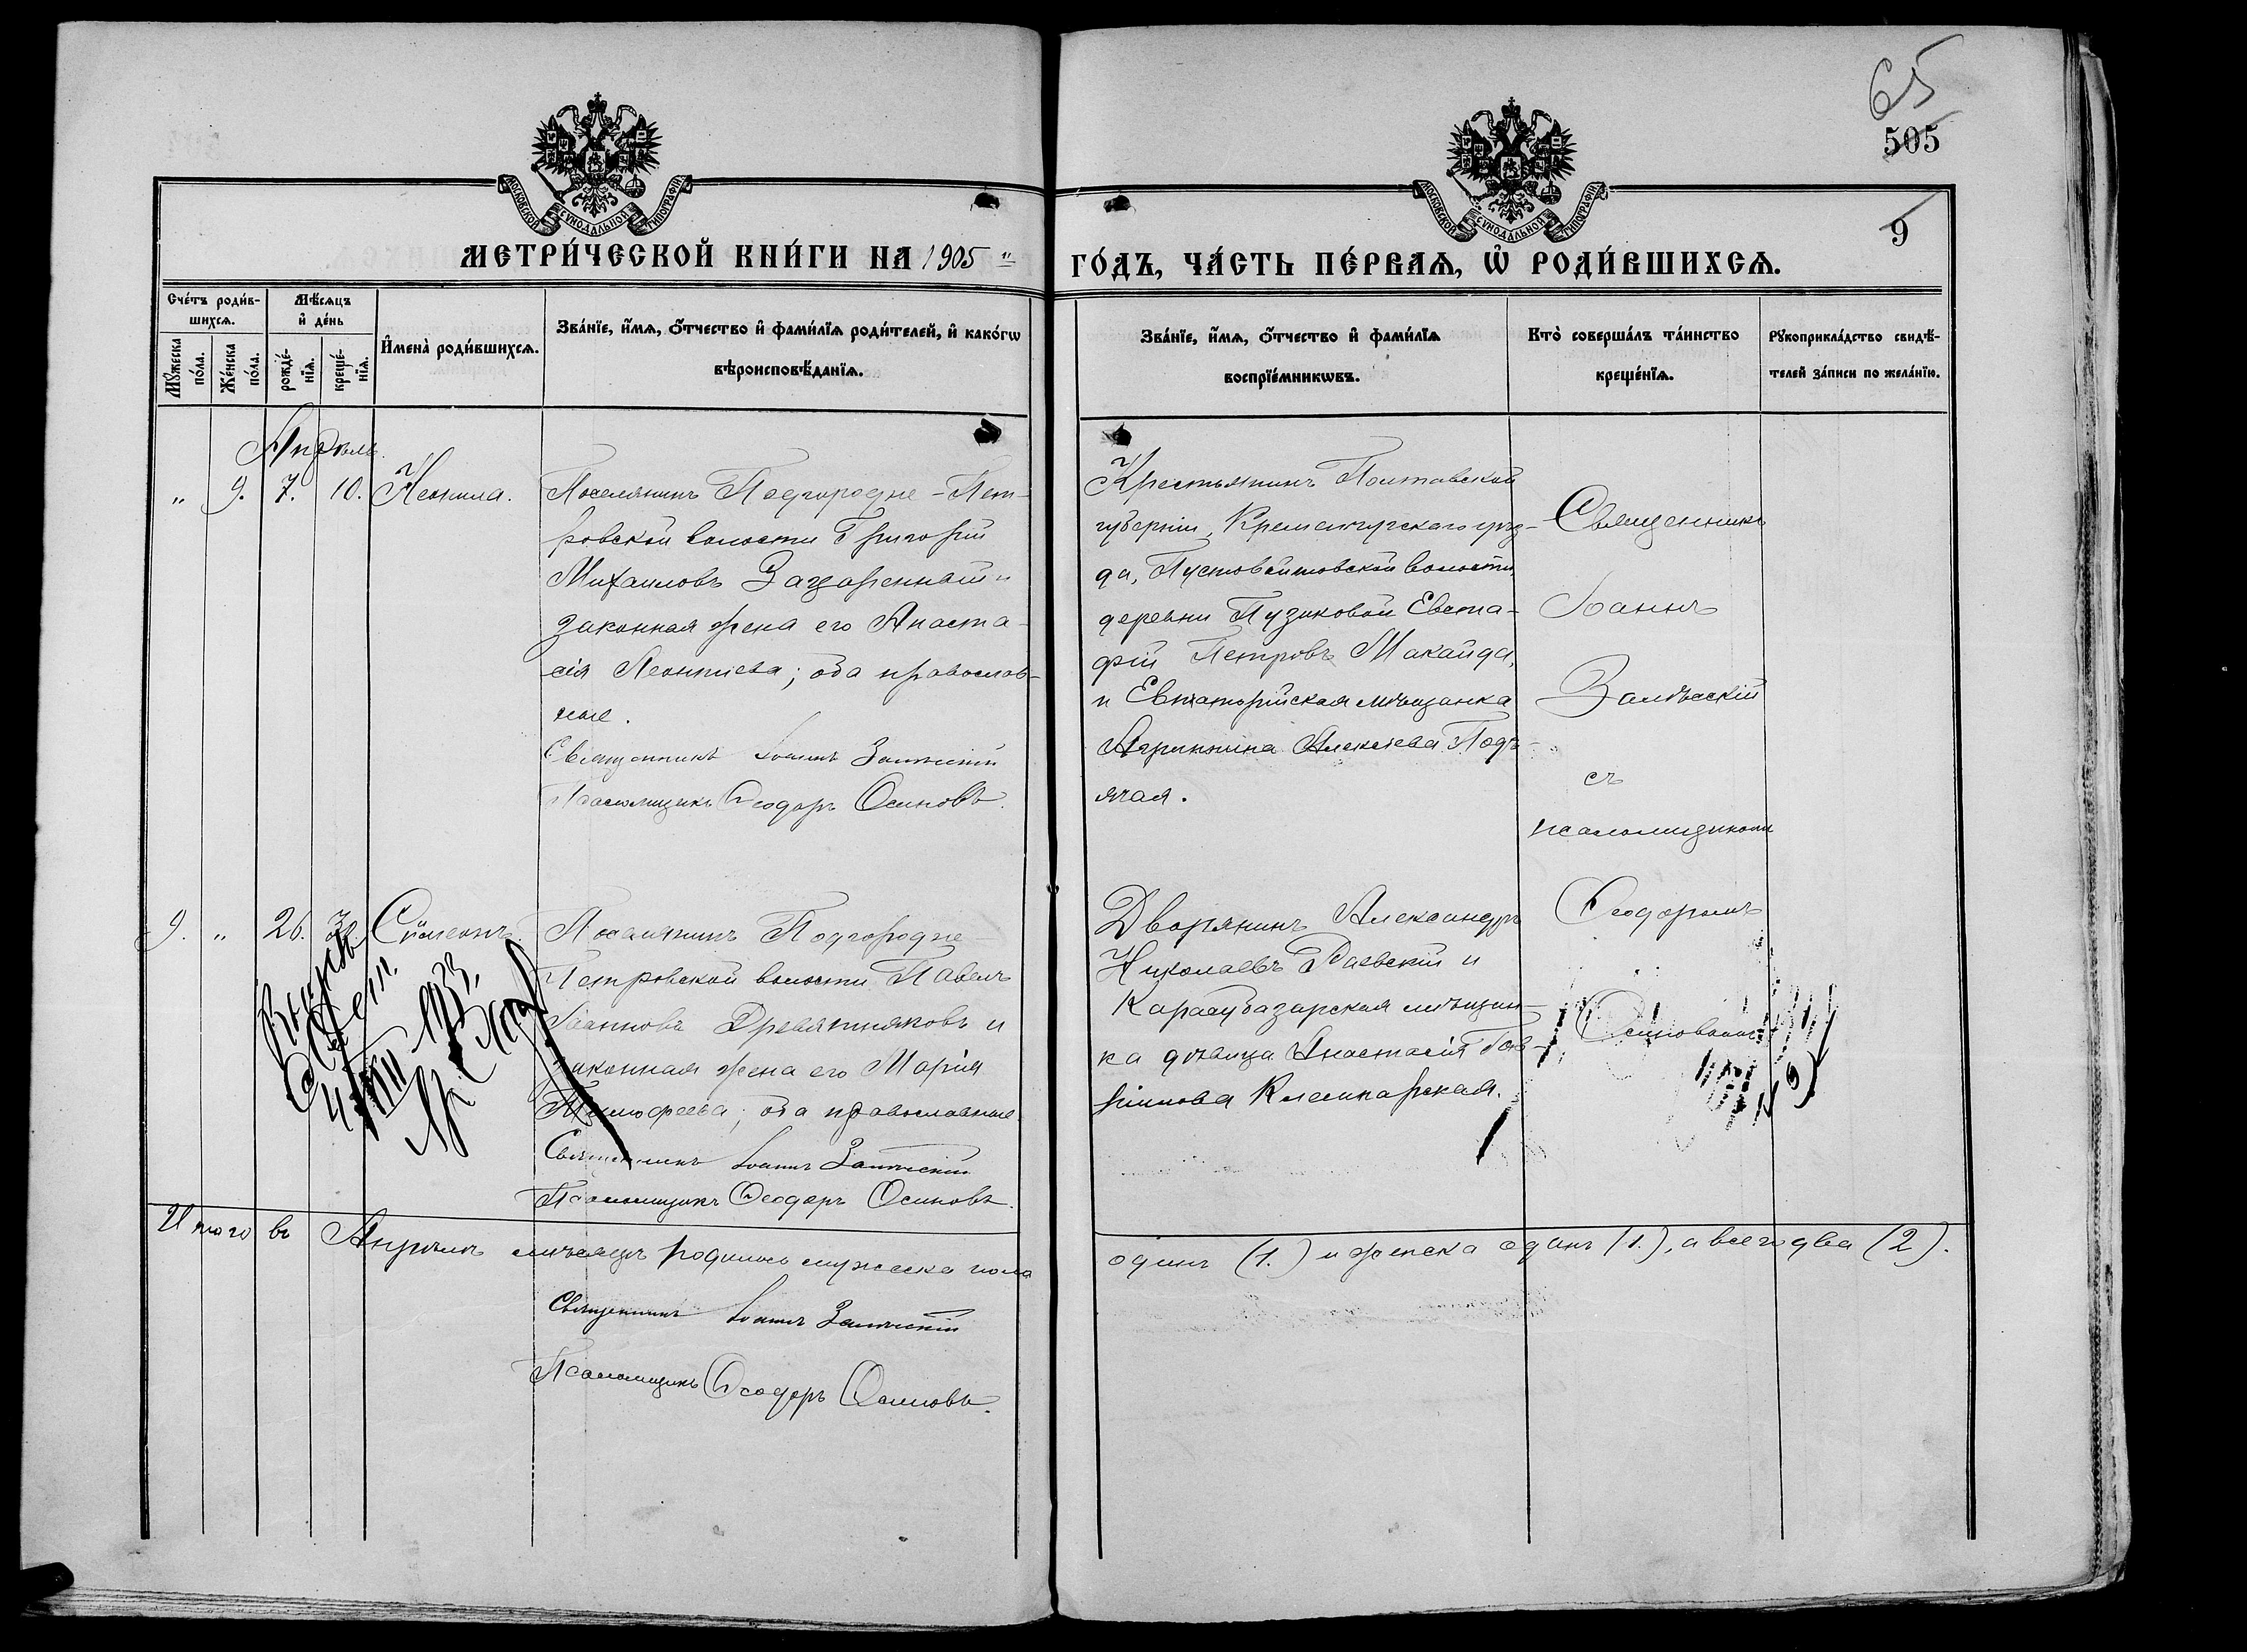 65
505
9
МОСКОВСКОЙ СѴНОДАЛЬНОЙ ТИПОГРАФІИ
МОСКОВСКОЙ СѴНОДАЛЬНОЙ ТИПОГРАФІИ
МЕТРИ́ЧЕСКОЙ КНИ́ГИ НА 1905 "
ГО́ДЪ, ЧА́СТЬ ПЕ́РВАѦ, Ѡ҆ РОДИ́ВШИХСѦ.
Сче́тъ роди́в-
шихсѧ.
Мꙋ́жеска по́ла.
Же́нска по́ла.
Мѣ́сѧцъ
и҆ де́нь
рожде́-
нїѧ.
креще́-
нїѧ.
И҆мена̀ роди́вшихсѧ.
Зва́нїе, и҆́мѧ, ѻ҆́тчество и҆ фами́лїѧ роди́телей, и҆ како́гѡ
вѣроисповѣ́данїѧ.
Зва́нїе, и҆́мѧ, ѻ҆́тчество и҆ фами́лїѧ
воспрїе́мникѡвъ.
Кто̀ соверша́лъ та́инство
креще́нїѧ.
Рꙋкоприкла́дство свидѣ́-
телей за́писи по жела́нїю.
Апрѣль.
" 9. 7. 10. Неонила.
Поселянинъ Подгородне-Пет-
ровской волости Григорій
Михаиловъ и
законная жена его Анаста-
сія Леонтіева; оба православ-
ные.
Священникъ Іоаннъ Залѣсскій
Псаломщикъ Ѳеодоръ Осиповъ.
Крестьянинъ Полтавской
губерніи, Кременчугскаго уѣз-
да, Пустовойтовской волости,
деревни Пузиковой Евста-
фій Петровъ Макайда,
и Евпаторійская мѣщанка
Агриппина Алексѣева Подъ-
ячая.
Священникъ
Іоаннъ
Залѣсскій
съ
псаломщикомъ
Ѳеодоромъ
Осиповымъ
9. " 26. Сѵмеонъ.
Поселянинъ Подгородне-
Петровской волости Павелъ
Іоанновъ Древятниковъ и
законная жена его Марія
Тимофеева; оба православные.
Священникъ Іоаннъ Залѣсскій
Псаломщикъ Ѳеодоръ Осиповъ.
Дворянинъ Александръ
Николаевъ Раевскій и
Карасубазарская мѣщан-
ка дѣвица Анастасія Гав-
ріилова
4/VIII 1933
Итого въ Апрѣлѣ мѣсяцѣ родилось мужеска пола
одинъ (1.) и женска одинъ (1.), а всего два (2).
Священникъ Іоаннъ Залѣсскій
Псаломщикъ Ѳеодоръ Осиповъ.